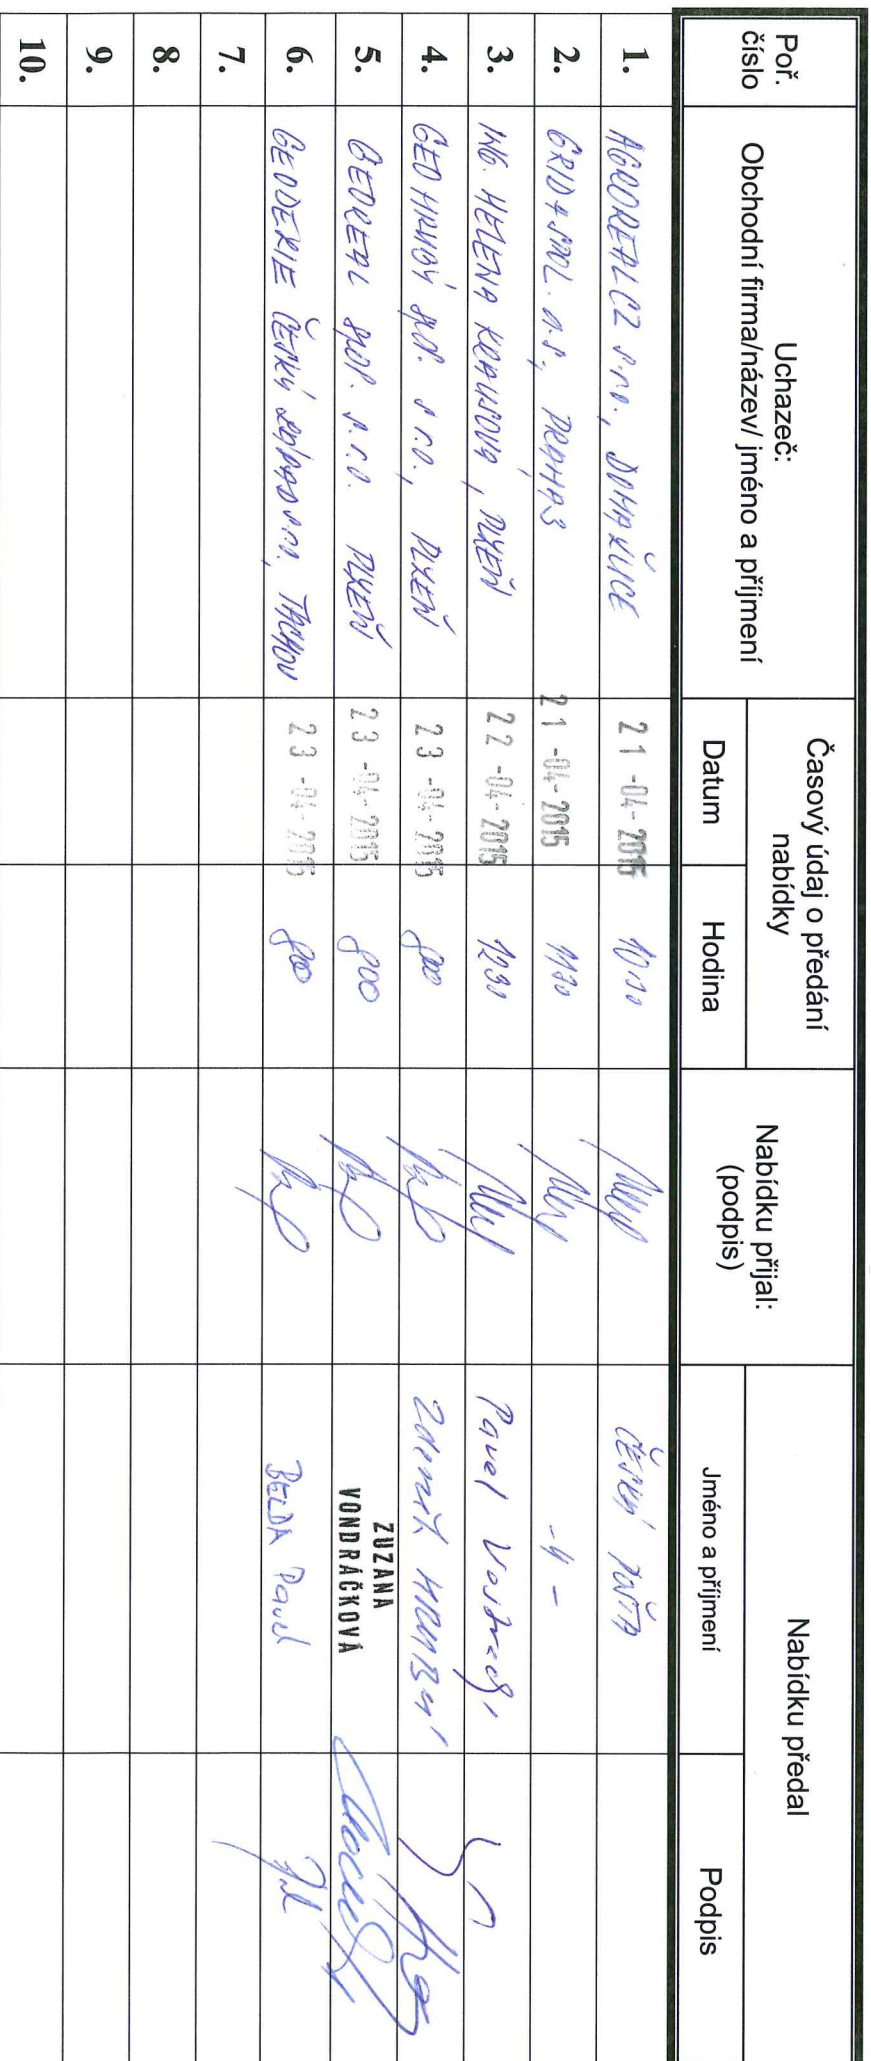 Poř. číslo
Uchazeč:
Obchodní firma/název/ jméno a příjmení
Časový údaj o předání nabídky
Datum
Hodina
Nabídku přijal:
(podpis)
Nabídku předal
Jméno a příjmení
Podpis
1. AGROREAL CZ s.r.o., DOMAŽLICE 21 -04- 2015 10:30 ČESKÁ POŠTA
2. GRID & SPOL. a.s., PRAHA 3 21 -04- 2015 1130 -4-
3. ING. HELENA KRAUSOVÁ, PLZEŇ 22 -04- 2015 1230 Pavel
4. GEO HRUBÝ spol. s r.o., PLZEŇ 23 -04- 2015 800 HRUBÝ
5. GEOREAL spol. s.r.o. PLZEŇ 23 -04- 2015 800 ZUZANA VONDRÁČKOVÁ
6. GEODEZIE ČESKÝ ZÁPAD s.r.o., TACHOV 23 -04- 2015 800 BELDA Pavel
7.
8.
9.
10.